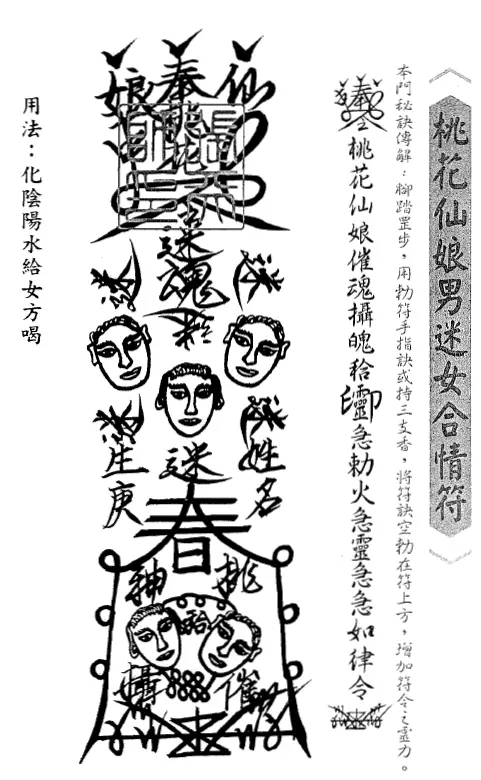 桃花仙娘男迷女合情符
本門秘訣傳解：腳踏罡步，用勅符手指訣或持三支香，將符訣空勅在符上方，增加符令之靈力。
奉
桃花仙娘催魂攝魄靈急勅火急靈急急如律令
仙奉娘
迷魂
姓名
迷
生庚
春
桃
神
催
攝
用法：化陰陽水給女方喝